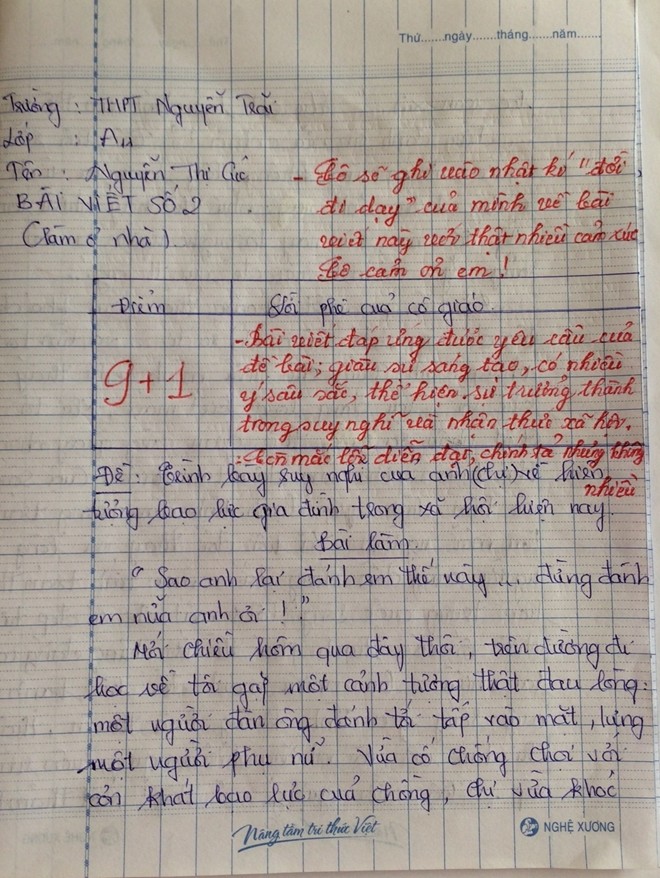 Thứ.......ngày.......tháng.......năm.......
Trường : THPT Nguyễn Trãi
Lớp : A11
Tên : Nguyễn Thị Cúc
BÀI VIẾT SỐ 2
(Làm ở nhà).
- Cô sẽ ghi vào nhật kí "đời
đi dạy" của mình về bài
viết này với thật nhiều cảm xúc
Cô cảm ơn em !
Điểm
Lời phê của cô giáo.
9+1
- Bài viết đáp ứng được yêu cầu của
đề bài; giàu sự sáng tạo, có nhiều
ý sâu sắc, thể hiện sự trưởng thành
trong suy nghĩ và nhận thức xã hội.
- Còn mắc lỗi diễn đạt, chính tả nhưng không
nhiều
Đề : Trình bày suy nghĩ của anh (chị) về hiện
tượng bạo lực gia đình trong xã hội hiện nay.
Bài làm.
" Sao anh lại đánh em thế này ... đừng đánh
em nữa anh ơi ! "
Mới chiều hôm qua đây thôi, trên đường đi
học về tôi gặp một cảnh tượng thật đau lòng:
một người đàn ông đánh tới tấp vào mặt, lưng
một người phụ nữ. Vừa cố chống chọi với
cơn khát bạo lực của chồng, chị vừa khóc
Nâng tầm tri thức Việt
NGHỆ XƯƠNG